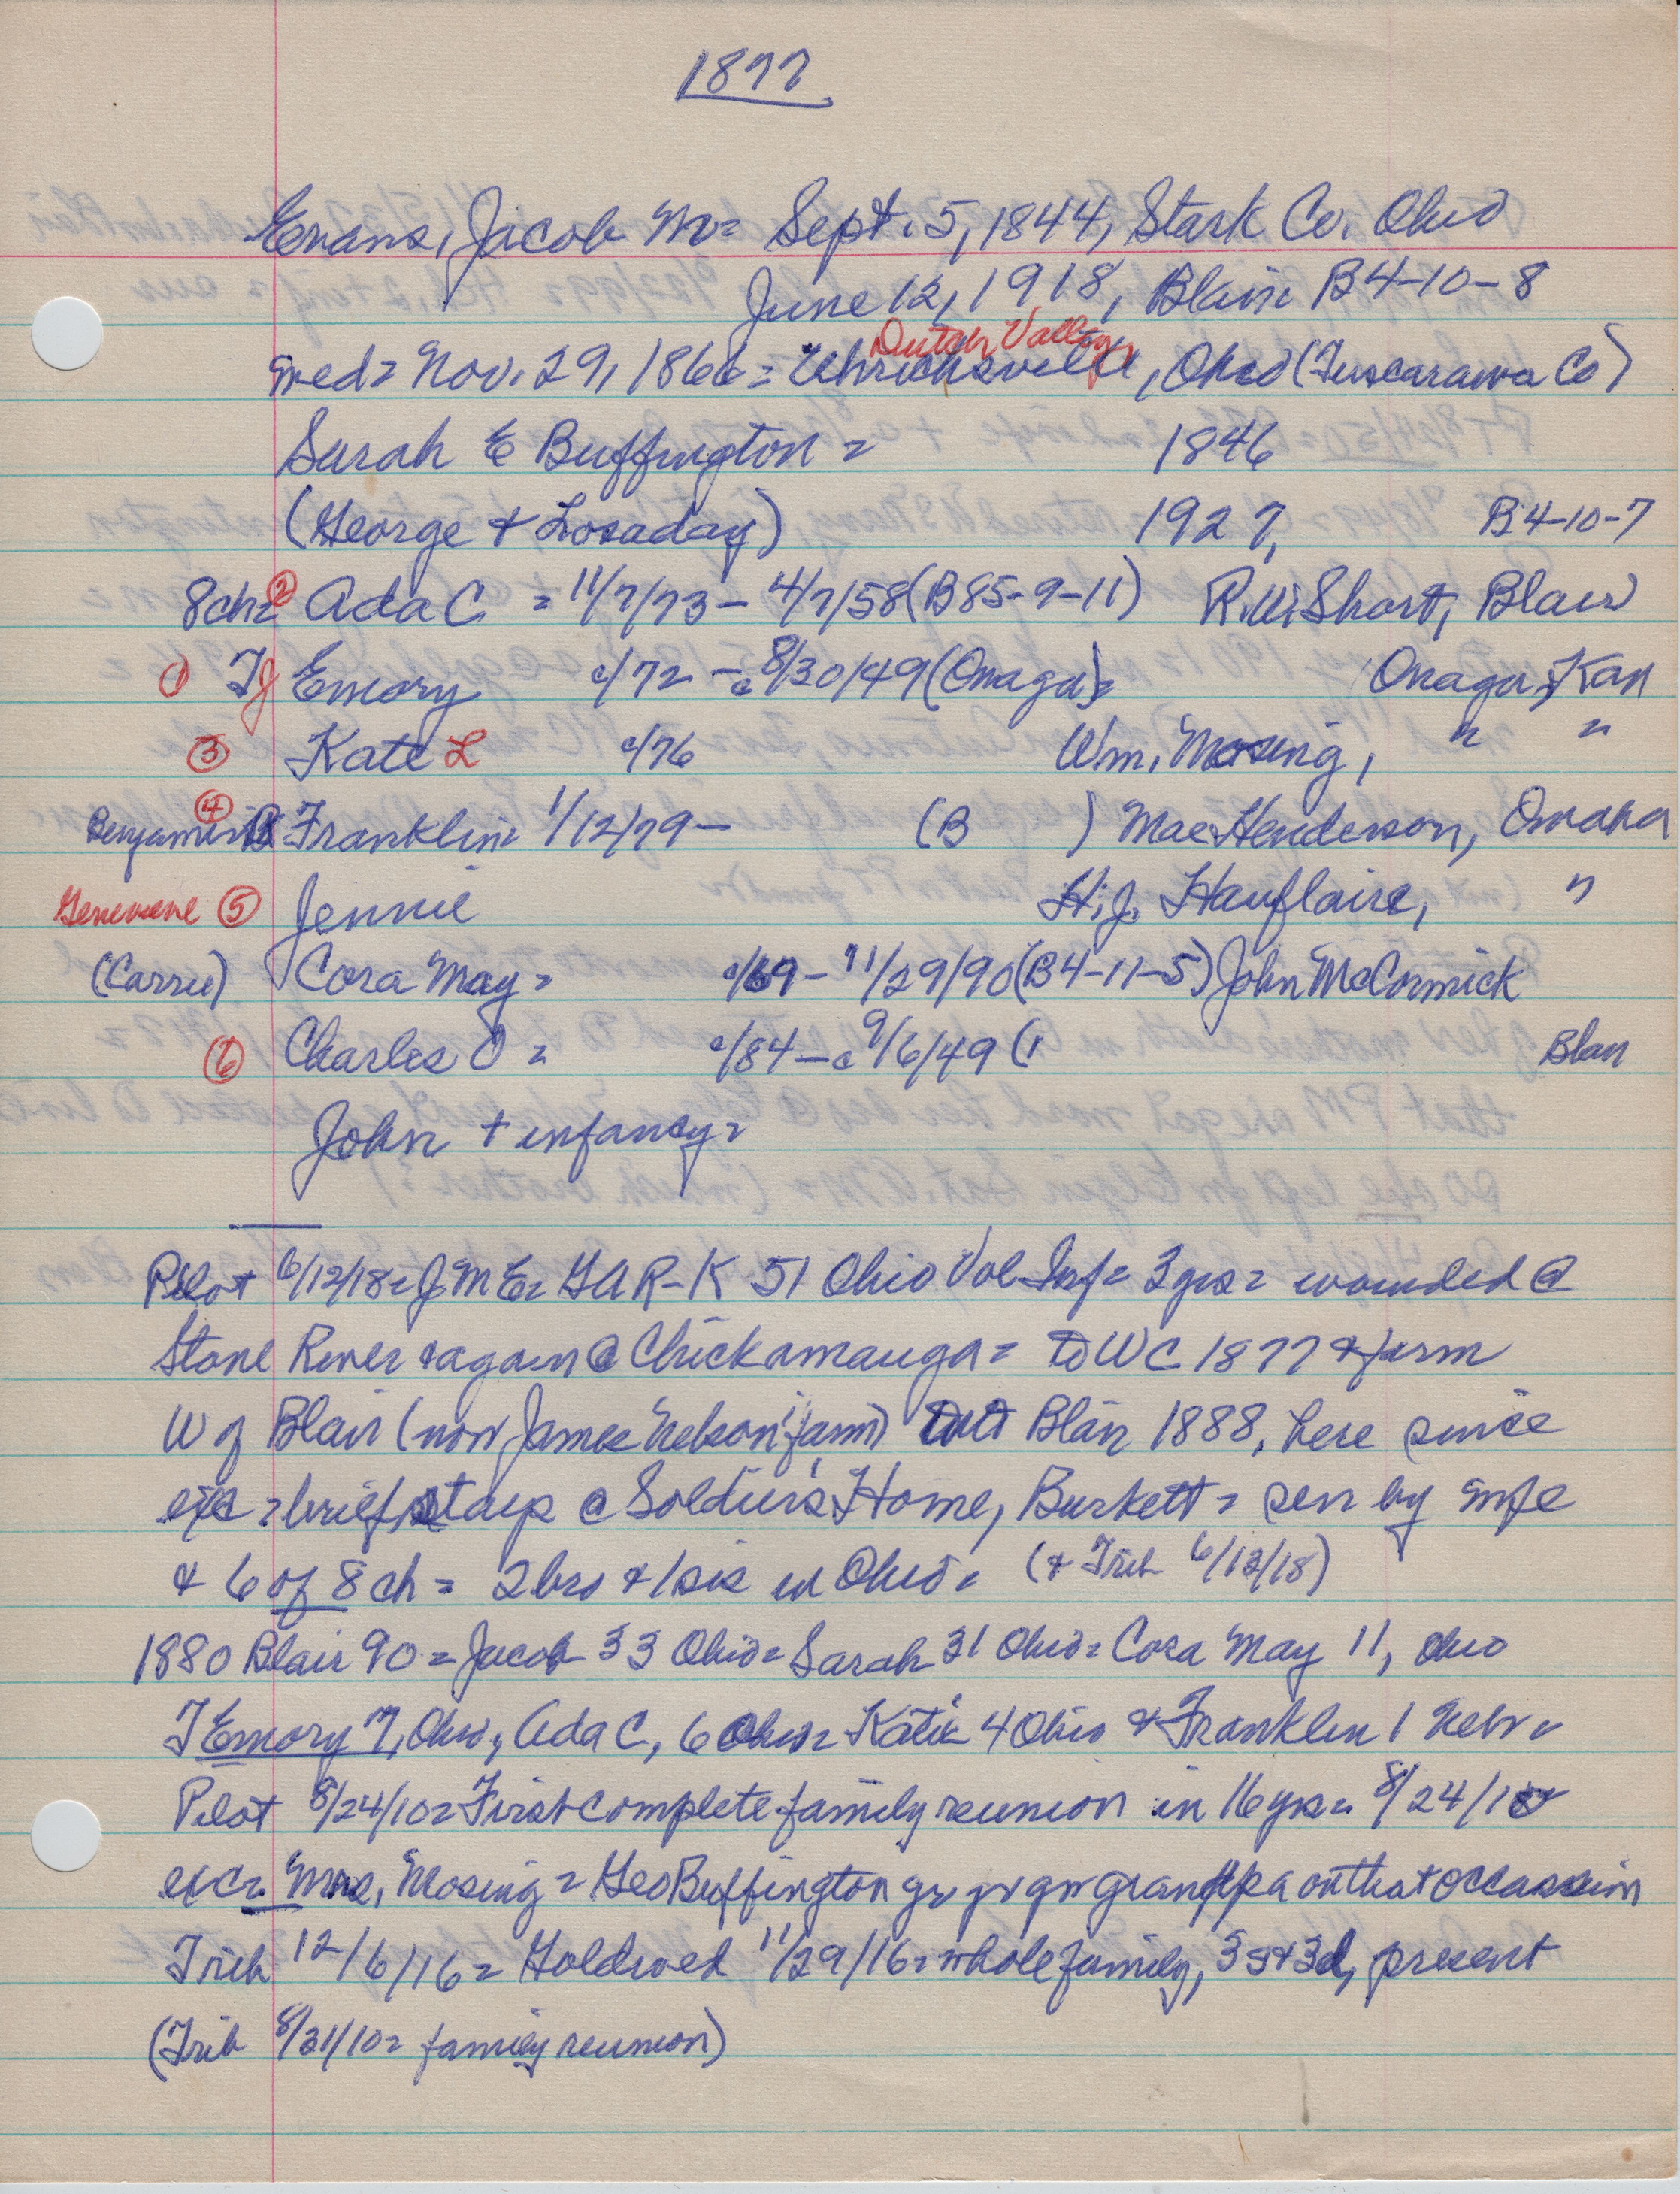 1877
Evans, Jacob M = Sept. 5, 1844, Stark Co. Ohio
June 12, 1918, Blair B4-10-8
Dutch Valley
med = Nov. 29, 1866 = Uhrichsville, Ohio (Tuscarawa Co)
Sarah E Buffington = 1846
(George & Losaday) 1927, B4-10-7
8ch = 2 Ada C = 11/7/73 - 4/7/58 (B85-9-11) R.W. Short, Blair
1 TJ Emory c/72 - c 8/30/49 (Onaga) = Onaga, Kan
3 Kate L c/76 Wm. Mosing, " "
4 Benjamin Franklin = 1/12/79 - (B ) Mae Henderson, Omaha
Genevieve 5 Jennie H.J. Hauflaire, "
(Carrie) Cora May = c/69 - 11/29/90 (B4-11-5) John McCormick
6 Charles O = c/84 - c 9/6/49 ( Blair
John + infancy =
Pilot 6/12/18 = J M E = GAR - K 51 Ohio Vol Inf = 3 yrs = wounded @
Stone River & again @ Chickamauga = to WC 1877 & farm
W of Blair (now James Nelson farm) Blair 1888, here since
exc = brief stays @ Soldiers Home, Burkett = surv by wife
& 6 of 8 ch = 2 bro & 1 sis in Ohio = (& Trib 6/12/18)
1880 Blair 90 = Jacob 33 Ohio = Sarah 31 Ohio = Cora May 11, Ohio
T Emory 7, Ohio, Ada C, 6 Ohio = Katie 4 Ohio & Franklin 1 Nebr =
Pilot 8/24/10 = First complete family reunion in 16 yrs = 8/24/10
exc = Mosing = Geo Buffington gr gr gr grandpa on that occassion
Trib 12/6/16 = Goldwed 11/29/16 = whole family, 3s + 3d, present
(Trib 8/31/10 = family reunion)